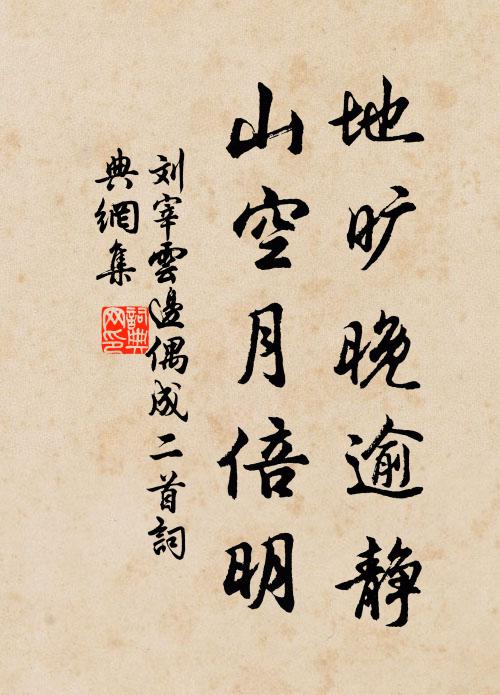 地旷晚逾静
山空月倍明
刘宰雲邊偶成二首詞
典網集
詞典
网印